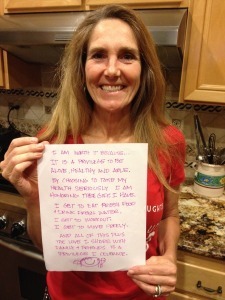 I AM WORTH IT BECAUSE...
IT IS A PRIVILEGE TO BE
ALIVE, HEALTHY AND AWARE.
BY CHOOSING TO TAKE MY
HEALTH SERIOUSLY I AM
HONORING THE GIFT I HAVE.
I GET TO EAT FRESH FOOD
+ DRINK FRESH WATER.
I GET TO WORKOUT.
I GET TO MOVE FREELY.
AND ALL OF THIS PLUS
THE LOVE I SHARE WITH
FAMILY + FRIENDS IS A
PRIVILEGE I CELEBRATE.
UGHT